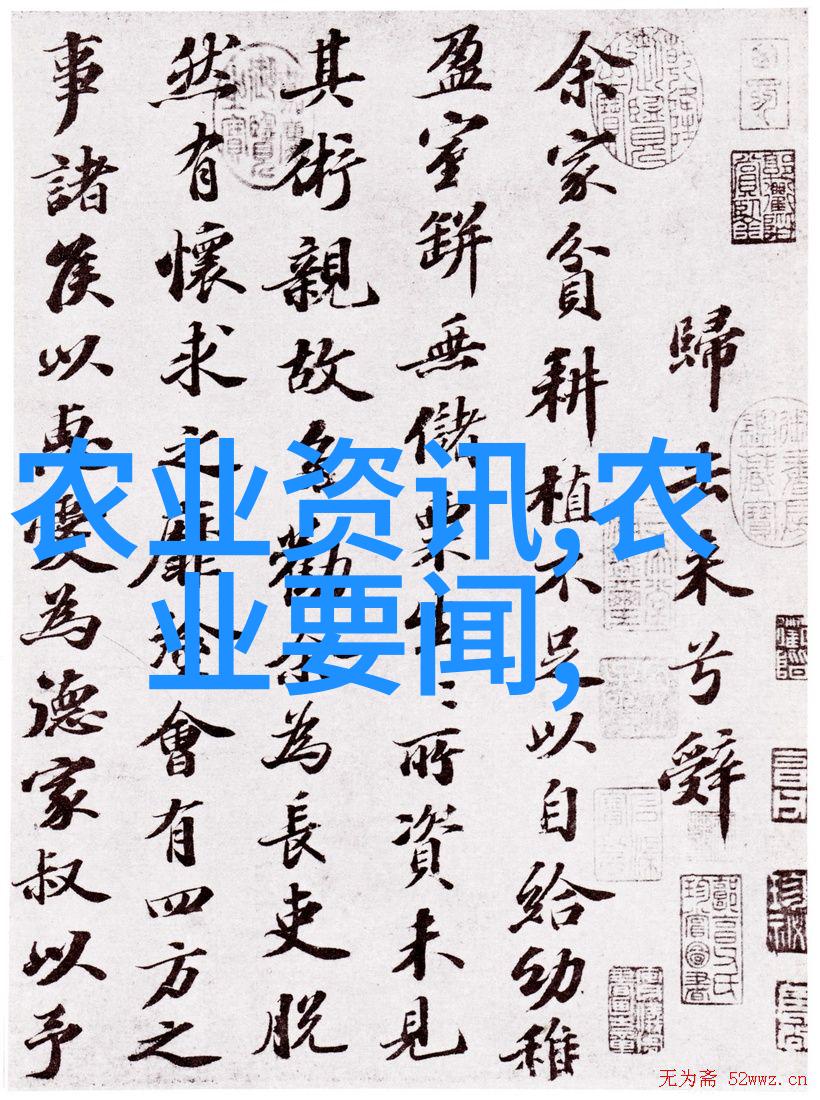 歸去来兮辭
余家貧耕植不足以自給幼稚
盈室缾無儲粟生〻所資未見
其術親故多勸余為長吏脱
然有懷求之靡途會有四方之
事諸侯以惠愛為德家叔以予
农业资讯,农
业要闻,
无为斋 52wwz.cn